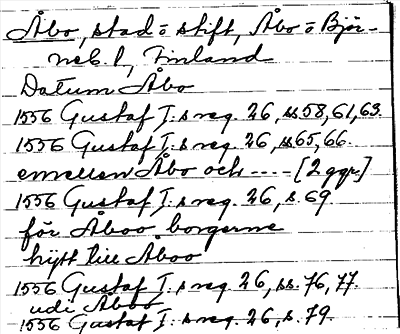 Åbo, stad o stift, Åbo o Björ-
neb. l, Finland
Datum Åbo
1556 Gustaf I:s reg. 26, ss 58, 61, 63.
1556 Gustaf I:s reg. 26, ss 65, 66.
emellan Åbo och ---- [2 ggr.]
1556 Gustaf I:s reg. 26, s. 69
för Åboo borgerne
hijtt till Åboo
1556 Gustaf I:s reg. 26, ss. 76, 77.
udi Åboo
1556 Gustaf I:s reg. 26, s. 79.